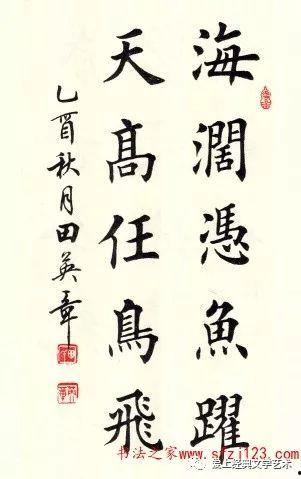 海濶憑魚躍
天高任鳥飛
乙酉秋月田英章
书法之家www.sfzj123.com
爱上经典文学艺术